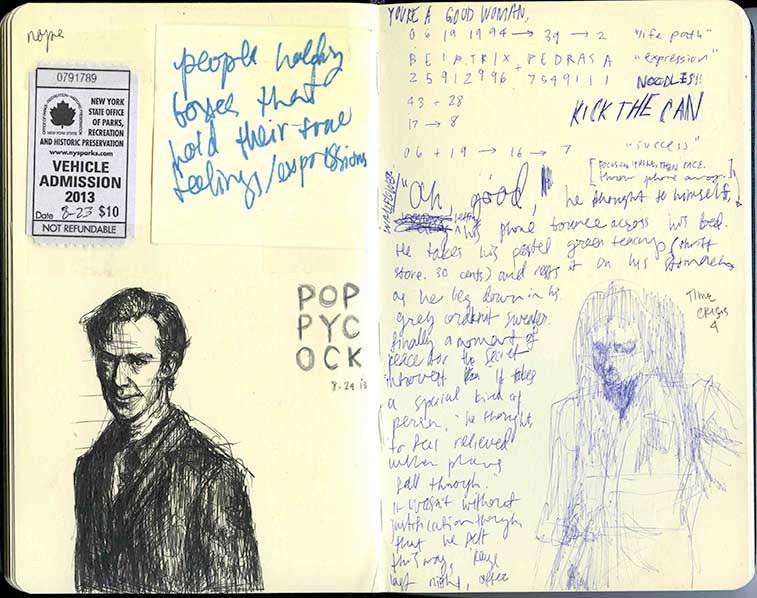 nope
0791789
NEW YORK
STATE OFFICE
OF PARKS,
RECREATION
AND HISTORIC PRESERVATION
www.nysparks.com
VEHICLE
ADMISSION
2013
Date 8-23 $10
NOT REFUNDABLE
people holding
boxes that
hold their true
feelings/expressions
POP
PYC
OCK
8.24.13
YOU'RE A GOOD WOMAN,
06 19 1994 → 39 → 2 "life path"
BEIATRIX + PEDRASA "expression"
25912996 + 7549111 NOODLES!!
43 + 28
17 → 8 KICK THE CAN
06 + 19 → 16 → 7 "success"
throw phone away.
WALLFLOWER:
"Oh, good," he thought to himself,
letting his phone bounce across his bed.
He takes his pastel green teacup (thrift
store. 30 cents) and rests it on his stomach
as he lay down in his
grey sweater.
Finally a moment of
peace for the secret
introvert. It takes
a special kind of
person, he thought,
to feel relieved
when plans
fall through.
It wasn't without
justification though
that he felt
this way,
last night, after
TIME
CRISIS
4